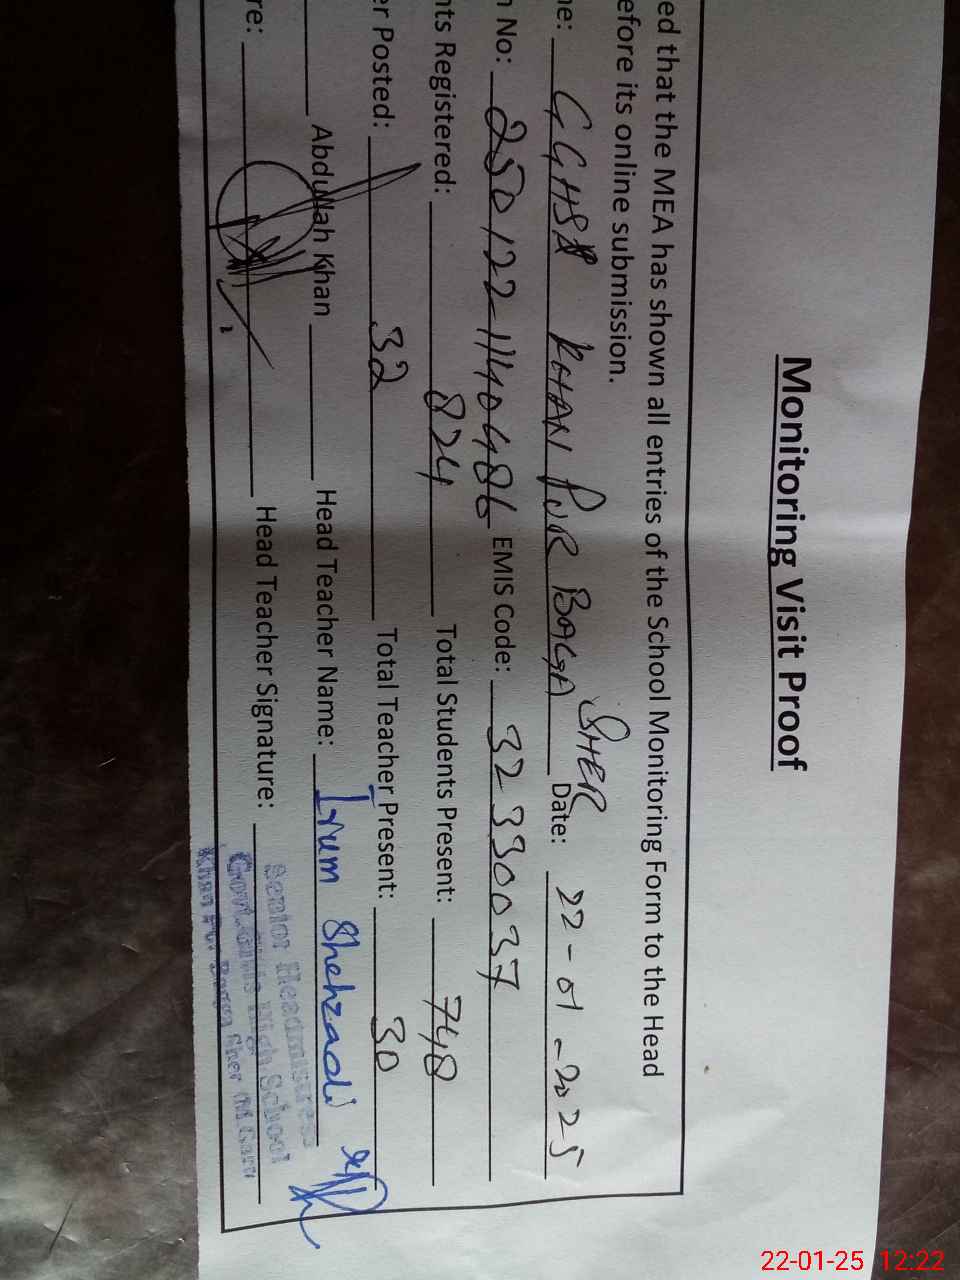 Monitoring Visit Proof
ed that the MEA has shown all entries of the School Monitoring Form to the Head
efore its online submission.
ne: GGHS KHAN PUR BAGGA SHER Date: 22-01-2025
n No: EMIS Code: 32330037
nts Registered: 824 Total Students Present: 748
er Posted: 32 Total Teacher Present: 30
Abdullah Khan Head Teacher Name: Irum Shehzadi
re: Head Teacher Signature:
Senior Headmistress
Govt. Girls High School
Khan Pur Bagga Sher (M.Garh
22-01-25 12:22